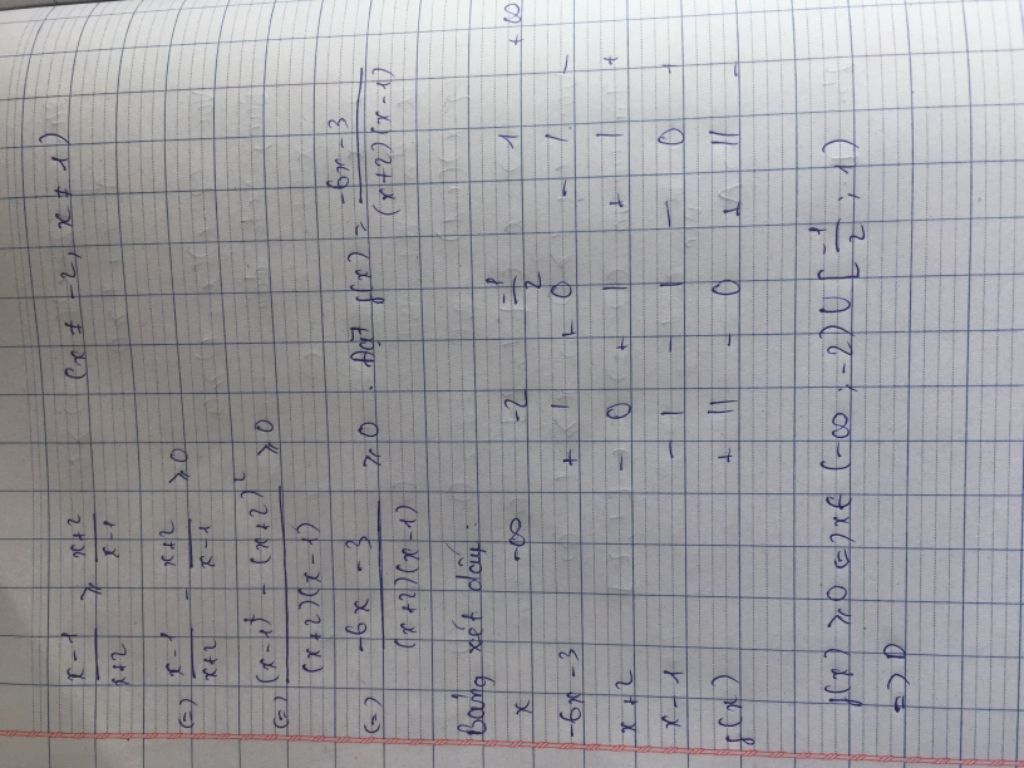 x-1/x+2 ⩾ x+2/x-1 (x ≠ -2, x ≠ 1)
(=) x-1/x+2 - x+2/x-1 ⩾0
(=) (x-1)² - (x+2)²/(x+2)(x-1) ⩾0
(=) -6x-3/(x+2)(x-1) ⩾0. Đặt f(x) = -6x-3/(x+2)(x-1)
Bảng xét dấu:
x -∞ -2 -1/2 1 +∞
-6x-3 + | + 0 - | -
x+2 - 0 + | + | +
x-1 - | - | - 0 +
f(x) + || - 0 + || -
f(x) ⩾0 (=) x∈ (-∞; -2) U [-1/2; 1)
=> D